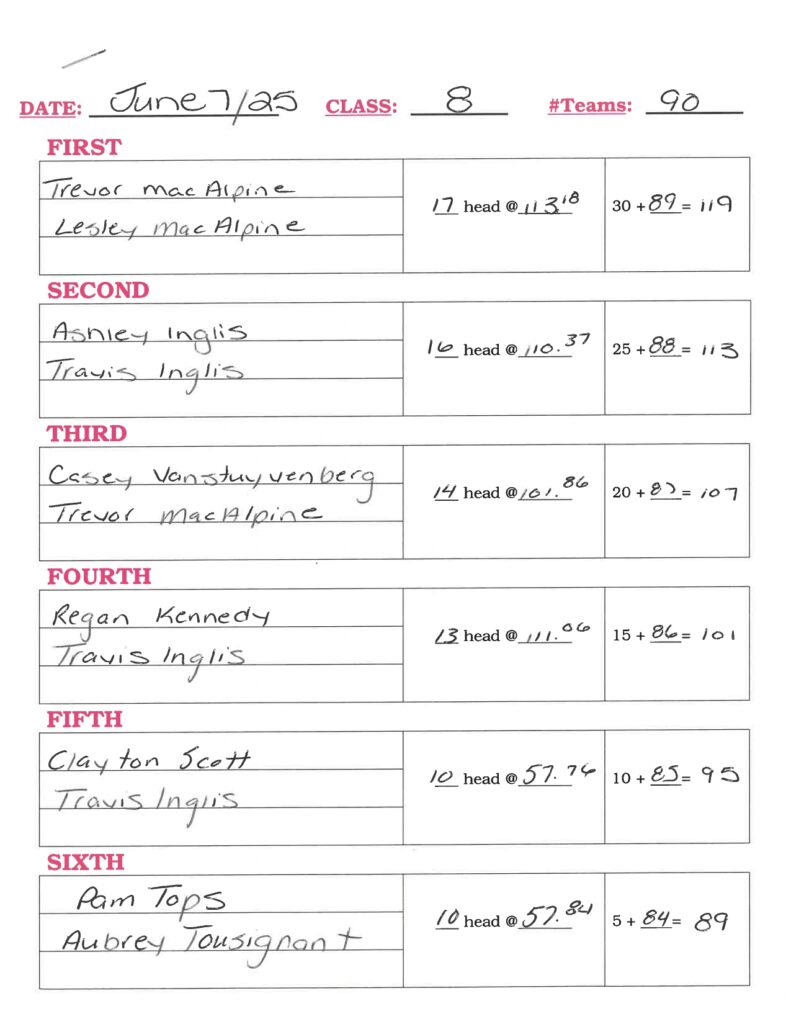 DATE: June 7/25 CLASS: 8 #Teams: 90
FIRST
Trevor MacAlpine
Lesley MacAlpine
17 head @ 113.18
30 + 89 = 119
SECOND
Ashley Inglis
Travis Inglis
16 head @ 110.37
25 + 88 = 113
THIRD
Casey Vanstuyvenberg
Trevor MacAlpine
14 head @ 101.86
20 + 87 = 107
FOURTH
Regan Kennedy
Travis Inglis
13 head @ 111.06
15 + 86 = 101
FIFTH
Clayton Scott
Travis Inglis
10 head @ 57.76
10 + 85 = 95
SIXTH
Pam Tops
Aubrey Tousignant
10 head @ 57.84
5 + 84 = 89